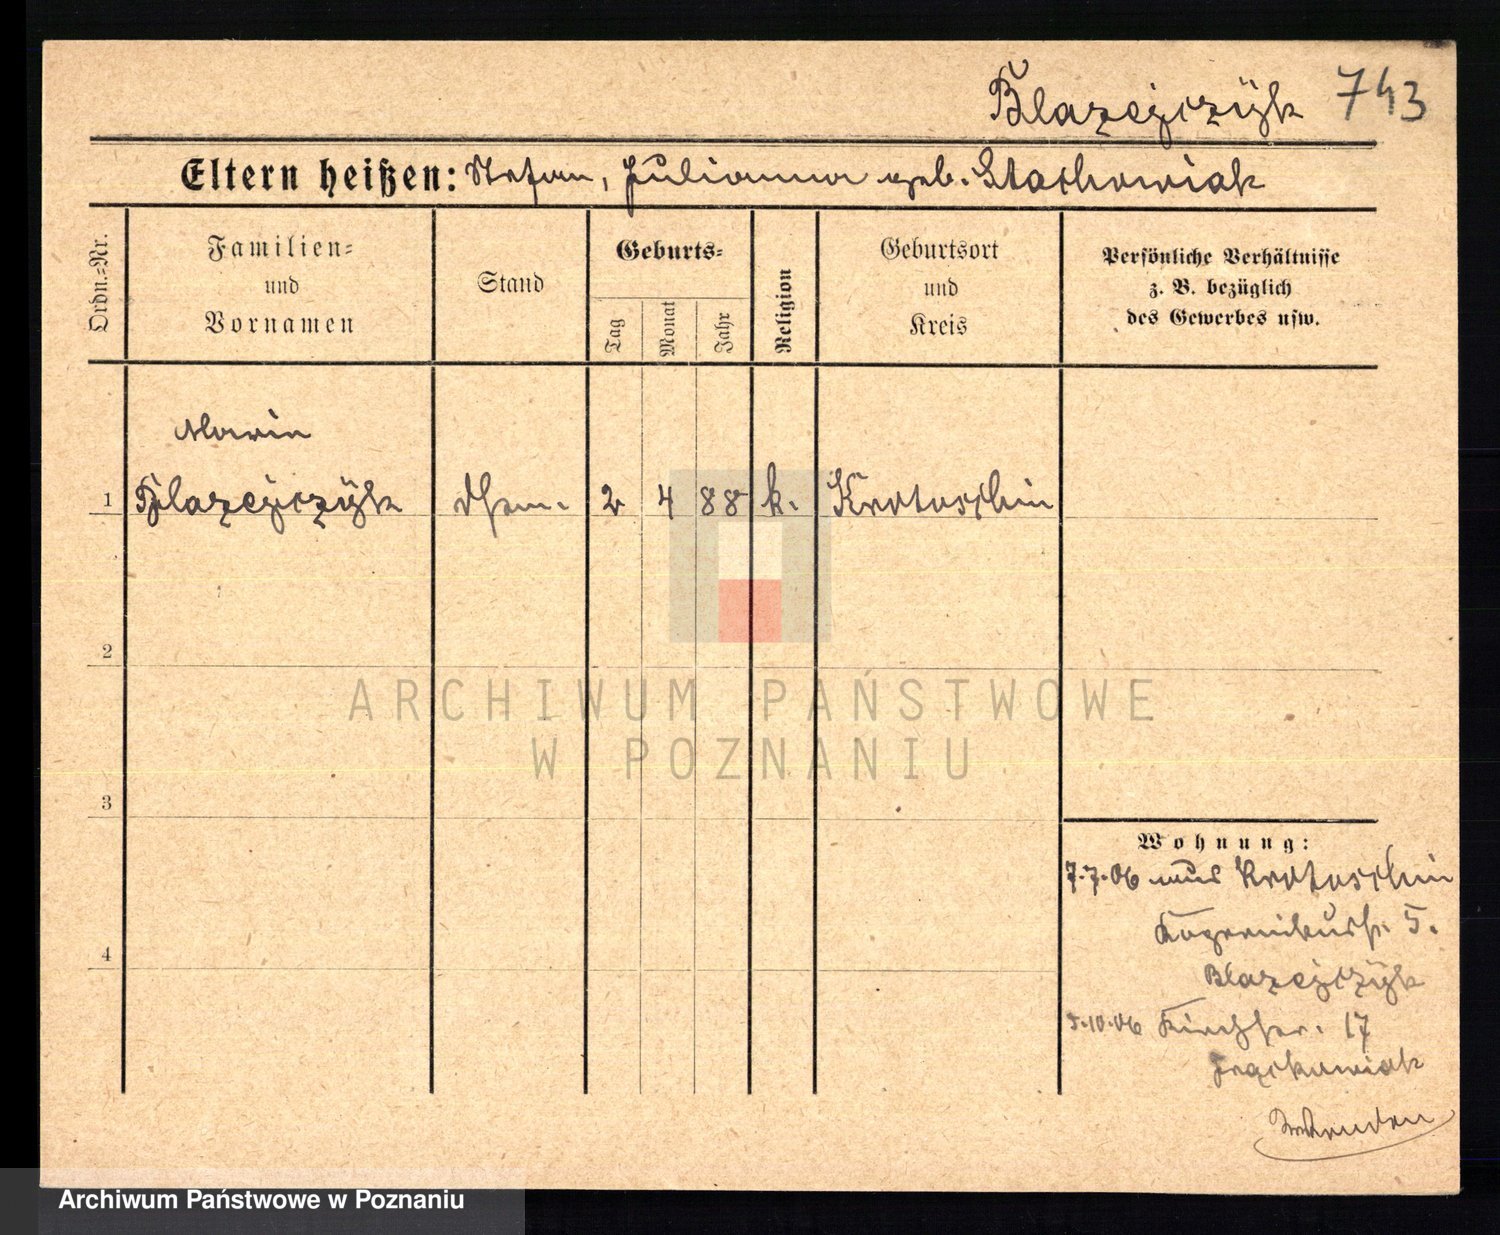 Blazejczyk 743
Eltern heißen: Stefan, Julianna geb. Stachowiak
Ordn.-Nr.
Familien- und Vornamen
Stand
Geburts-
Tag
Monat
Jahr
Religion
Geburtsort und Kreis
Persönliche Verhältnisse
z. B. bezüglich
des Gewerbes usw.
Marie
1 Blazejczyk 2 4 88 k. Krotoschin
2
ARCHIWUM PAŃSTWOWE
W POZNANIU
3
Wohnung:
7.7.06 aus Krotoschin
5.
Blazejczyk
4
5.10.06 17
Archiwum Państwowe w Poznaniu